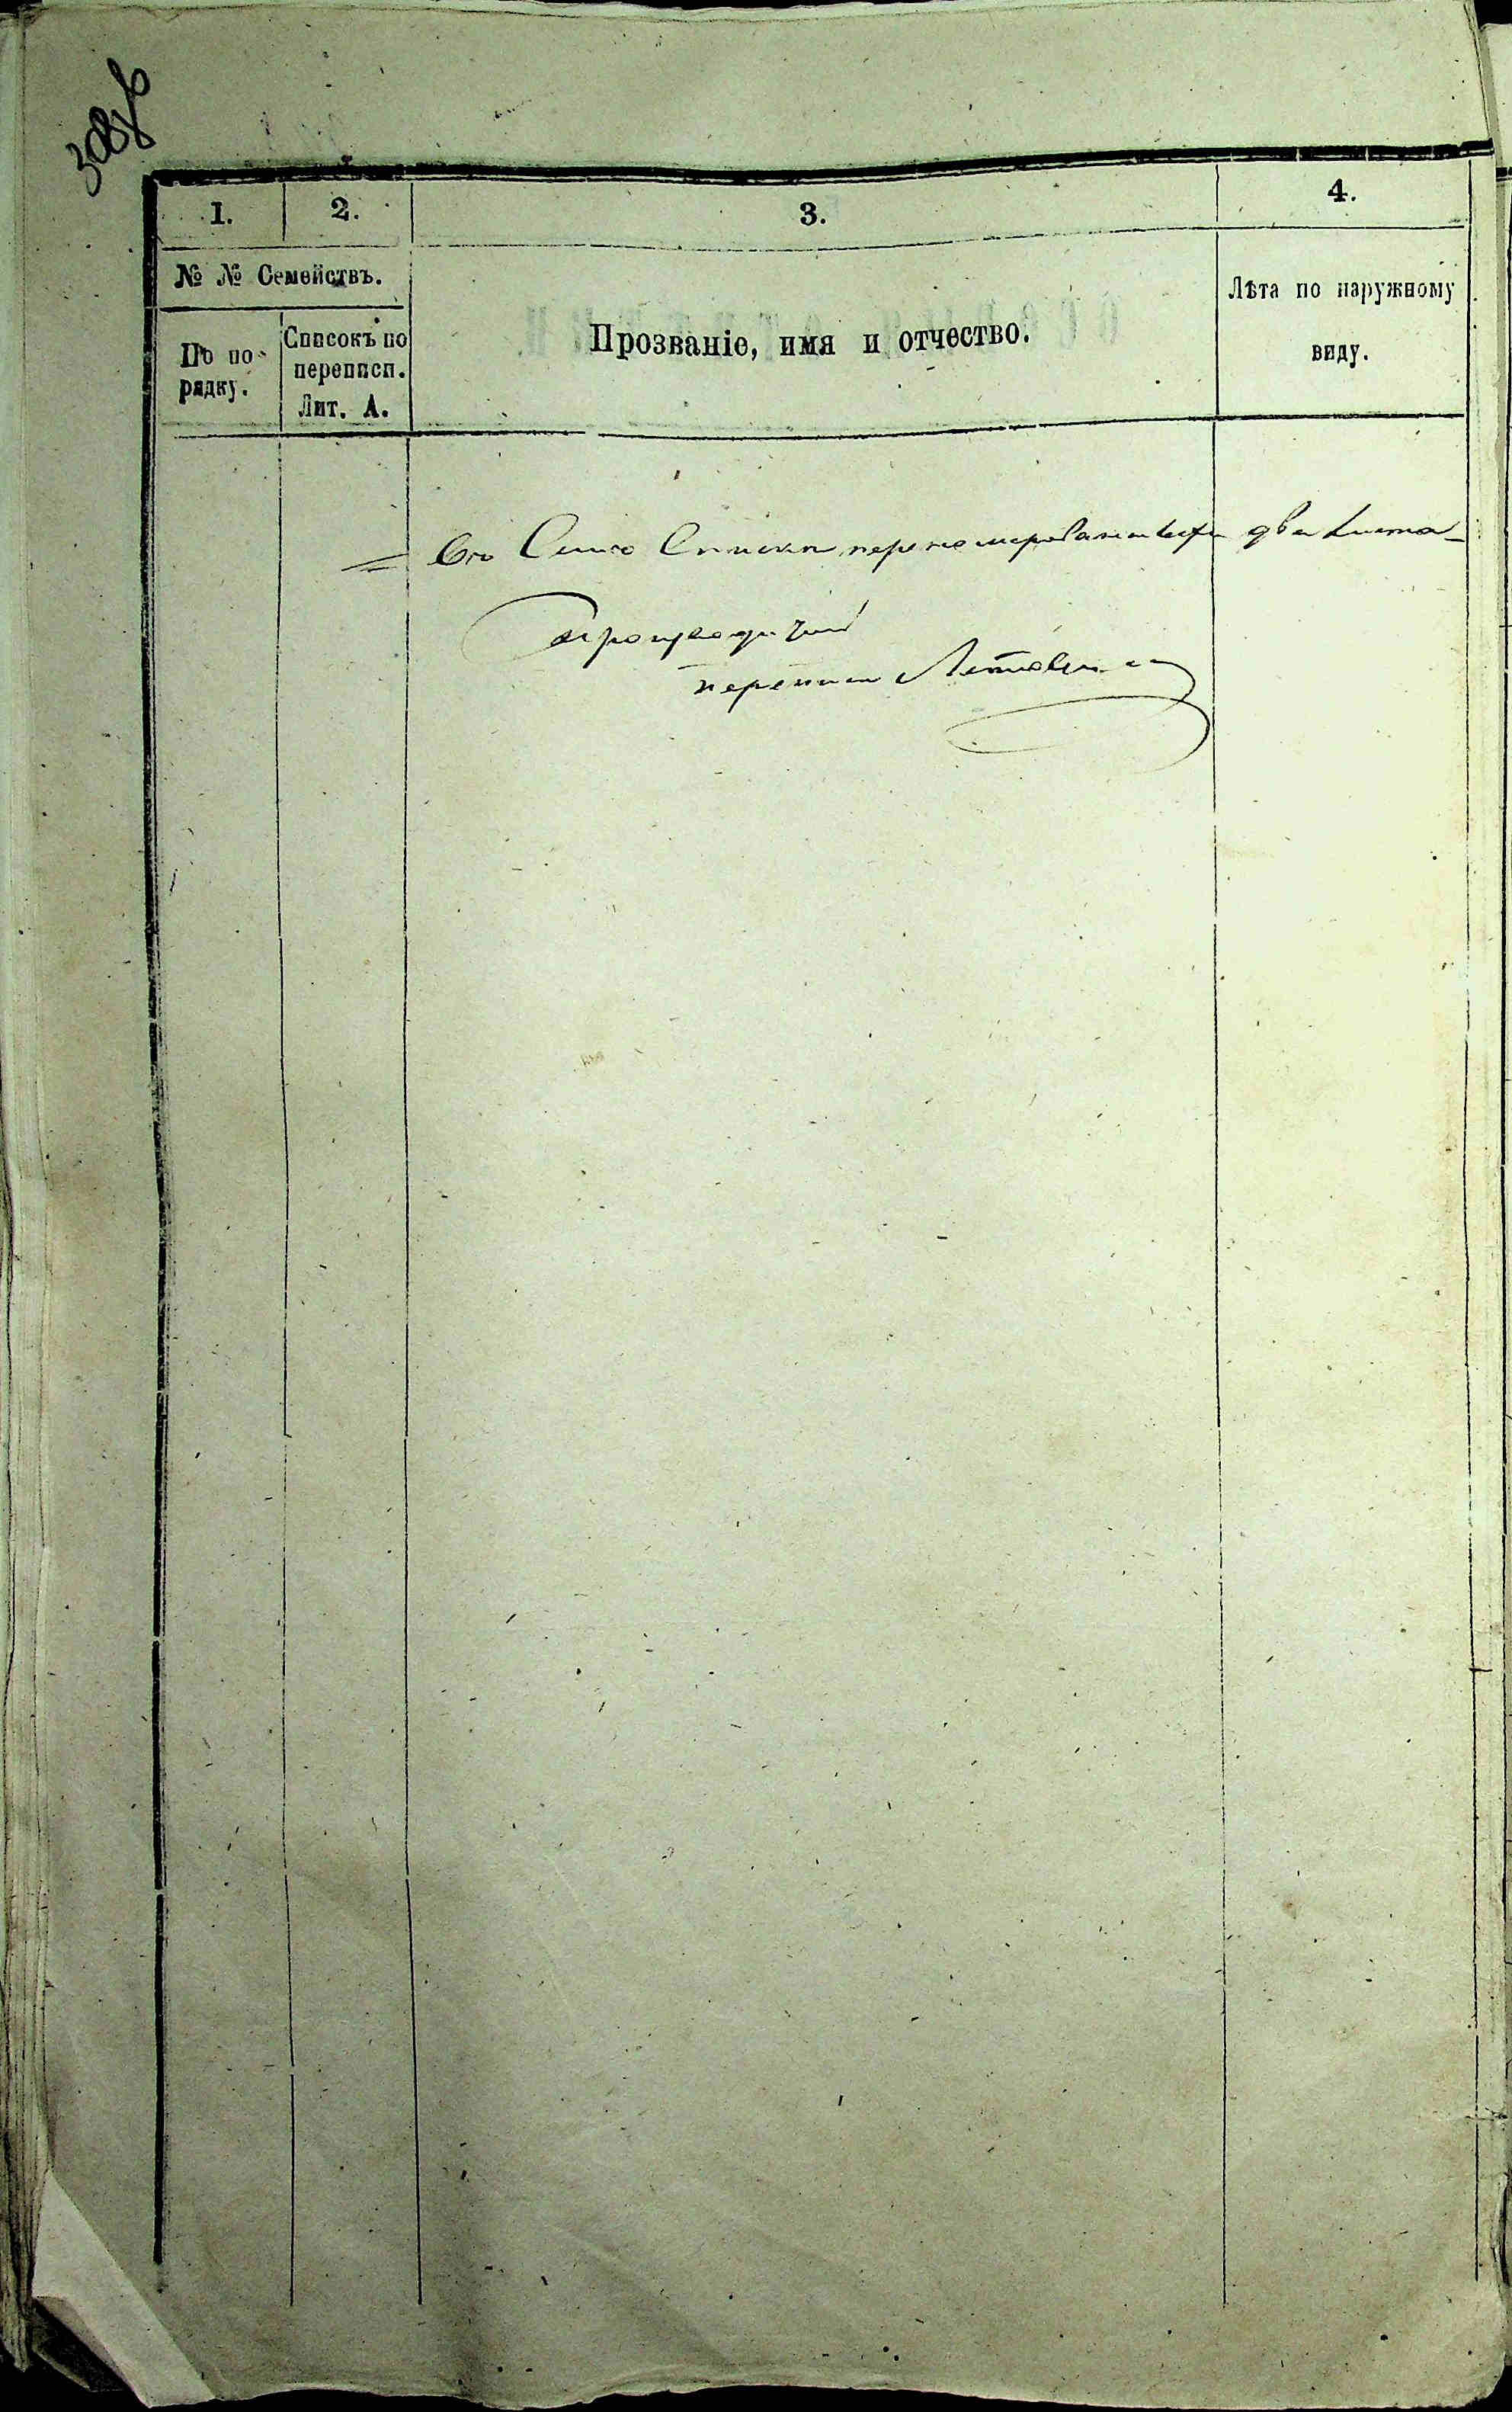 1.
2.
3.
4.
№ № Семействъ.
По по-
рядку.
Списокъ по
переписи.
Лит. А.
Прозваніе, имя и отчество.
Лѣта по наружному
виду.
Въ Семъ Списки перенумеровано два листа
Производящій
переписи